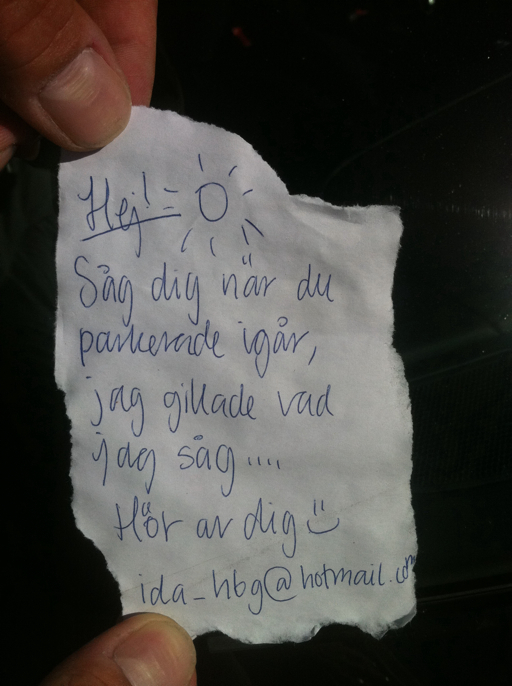 Hej!
Såg dig när du
parkerade igår,
jag gillade vad
jag såg....
Hör av dig :)
ida_hbg@hotmail.com